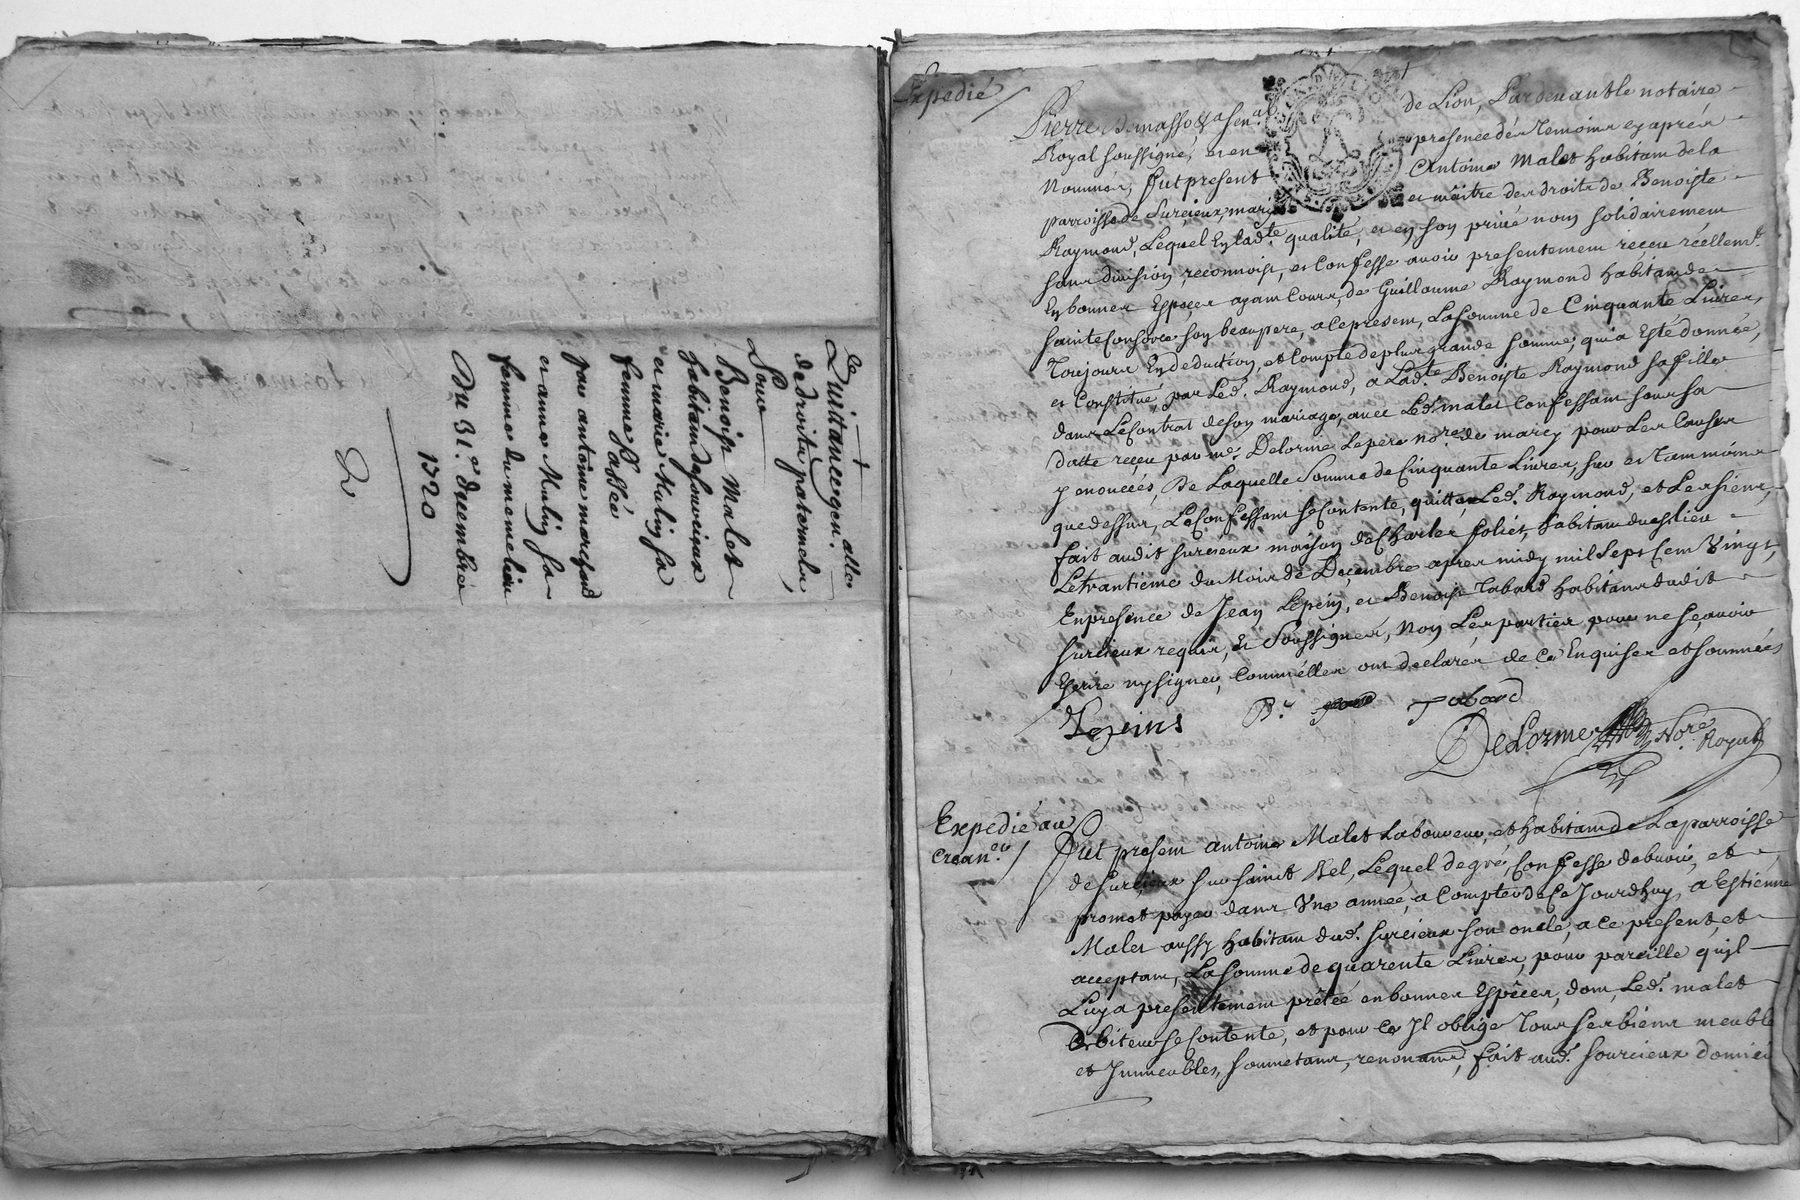 de Quittance gen. alle
de droits paternels,
Pour
Benoist Malet
habitant de Sourcieux
et marie Mulin sa
femme Passée
par antoine marchand
et anne Mulin sa
femme du meme lieu
Du 31.e decembre
1720
2
Expedié
de Lion, Pardevant le notaire
Royal soussigné, et en presence des Temoins cy aprés
Nommés, fut present Antoine Malet habitant de la
parroisse de Surcieux, mari et maitre des droits de Benoiste
Raymond, Lequel En lad.te qualité, et en son privé nom solidairement
sans division, reconnoist, et Confesse avoir presentement reçeu réellem.t
En bonnes Espeçes ayant Cours, de Guillaume Raymond habitant de
Sainte Consorce son beaupere, a ce present, La somme de Cinquante Livres,
Toujours En deduction, et Compte de plus grande somme, qui a Esté donnée,
et Constitué, par Led. Raymond, a Lad.te Benoiste Raymond sa fille
dans Le Contrat de son mariage, avec Led. malet Confessant sous sa
datte reçeu par me. Delorme Le pere no.re de marcy pour Les Causes
y enoncées, De Laquelle Somme de Cinquante Livres,
que dessus, Le Confessant se Contente, quitte Led. Raymond, et Les siens,
fait audit surcieux maison de Charles foliet, habitant dudit lieu
Le trantieme du Mois de Deçembre apres midy mil Sept Cent Vingt,
En presence de Jean Lepein, et Benoist Tabard habitans dudit
surcieux requis, Et Soussignés, Non Les parties pour ne sçavoir
Escrire ny signer, Comm'elles ont declarés de Ce Enquises et sommées
Lepeins B.t Tabard
DeLorme No.re Royal
Expedié au
crean.er
fut present antoine Malet Laboureur, et habitant de La parroisse
de surcieux sur saint Bel, Lequel de gré, Confesse debvoir, et
promet payer dans Une année, a Compter de Ce Jourdhuy, a Estienne
Malet aussy habitant dud. surcieux son oncle, a ce present, et
acceptant, La somme de quarente Livres, pour pareille quil
Luy a presentement prêtée en bonnes Espèces, dont Led. malet
debiteur se Contente, et pour Ce Il oblige Tous ses biens meuble
et Immeubles, soumettant, renonçant, fait aud. sourcieux domici